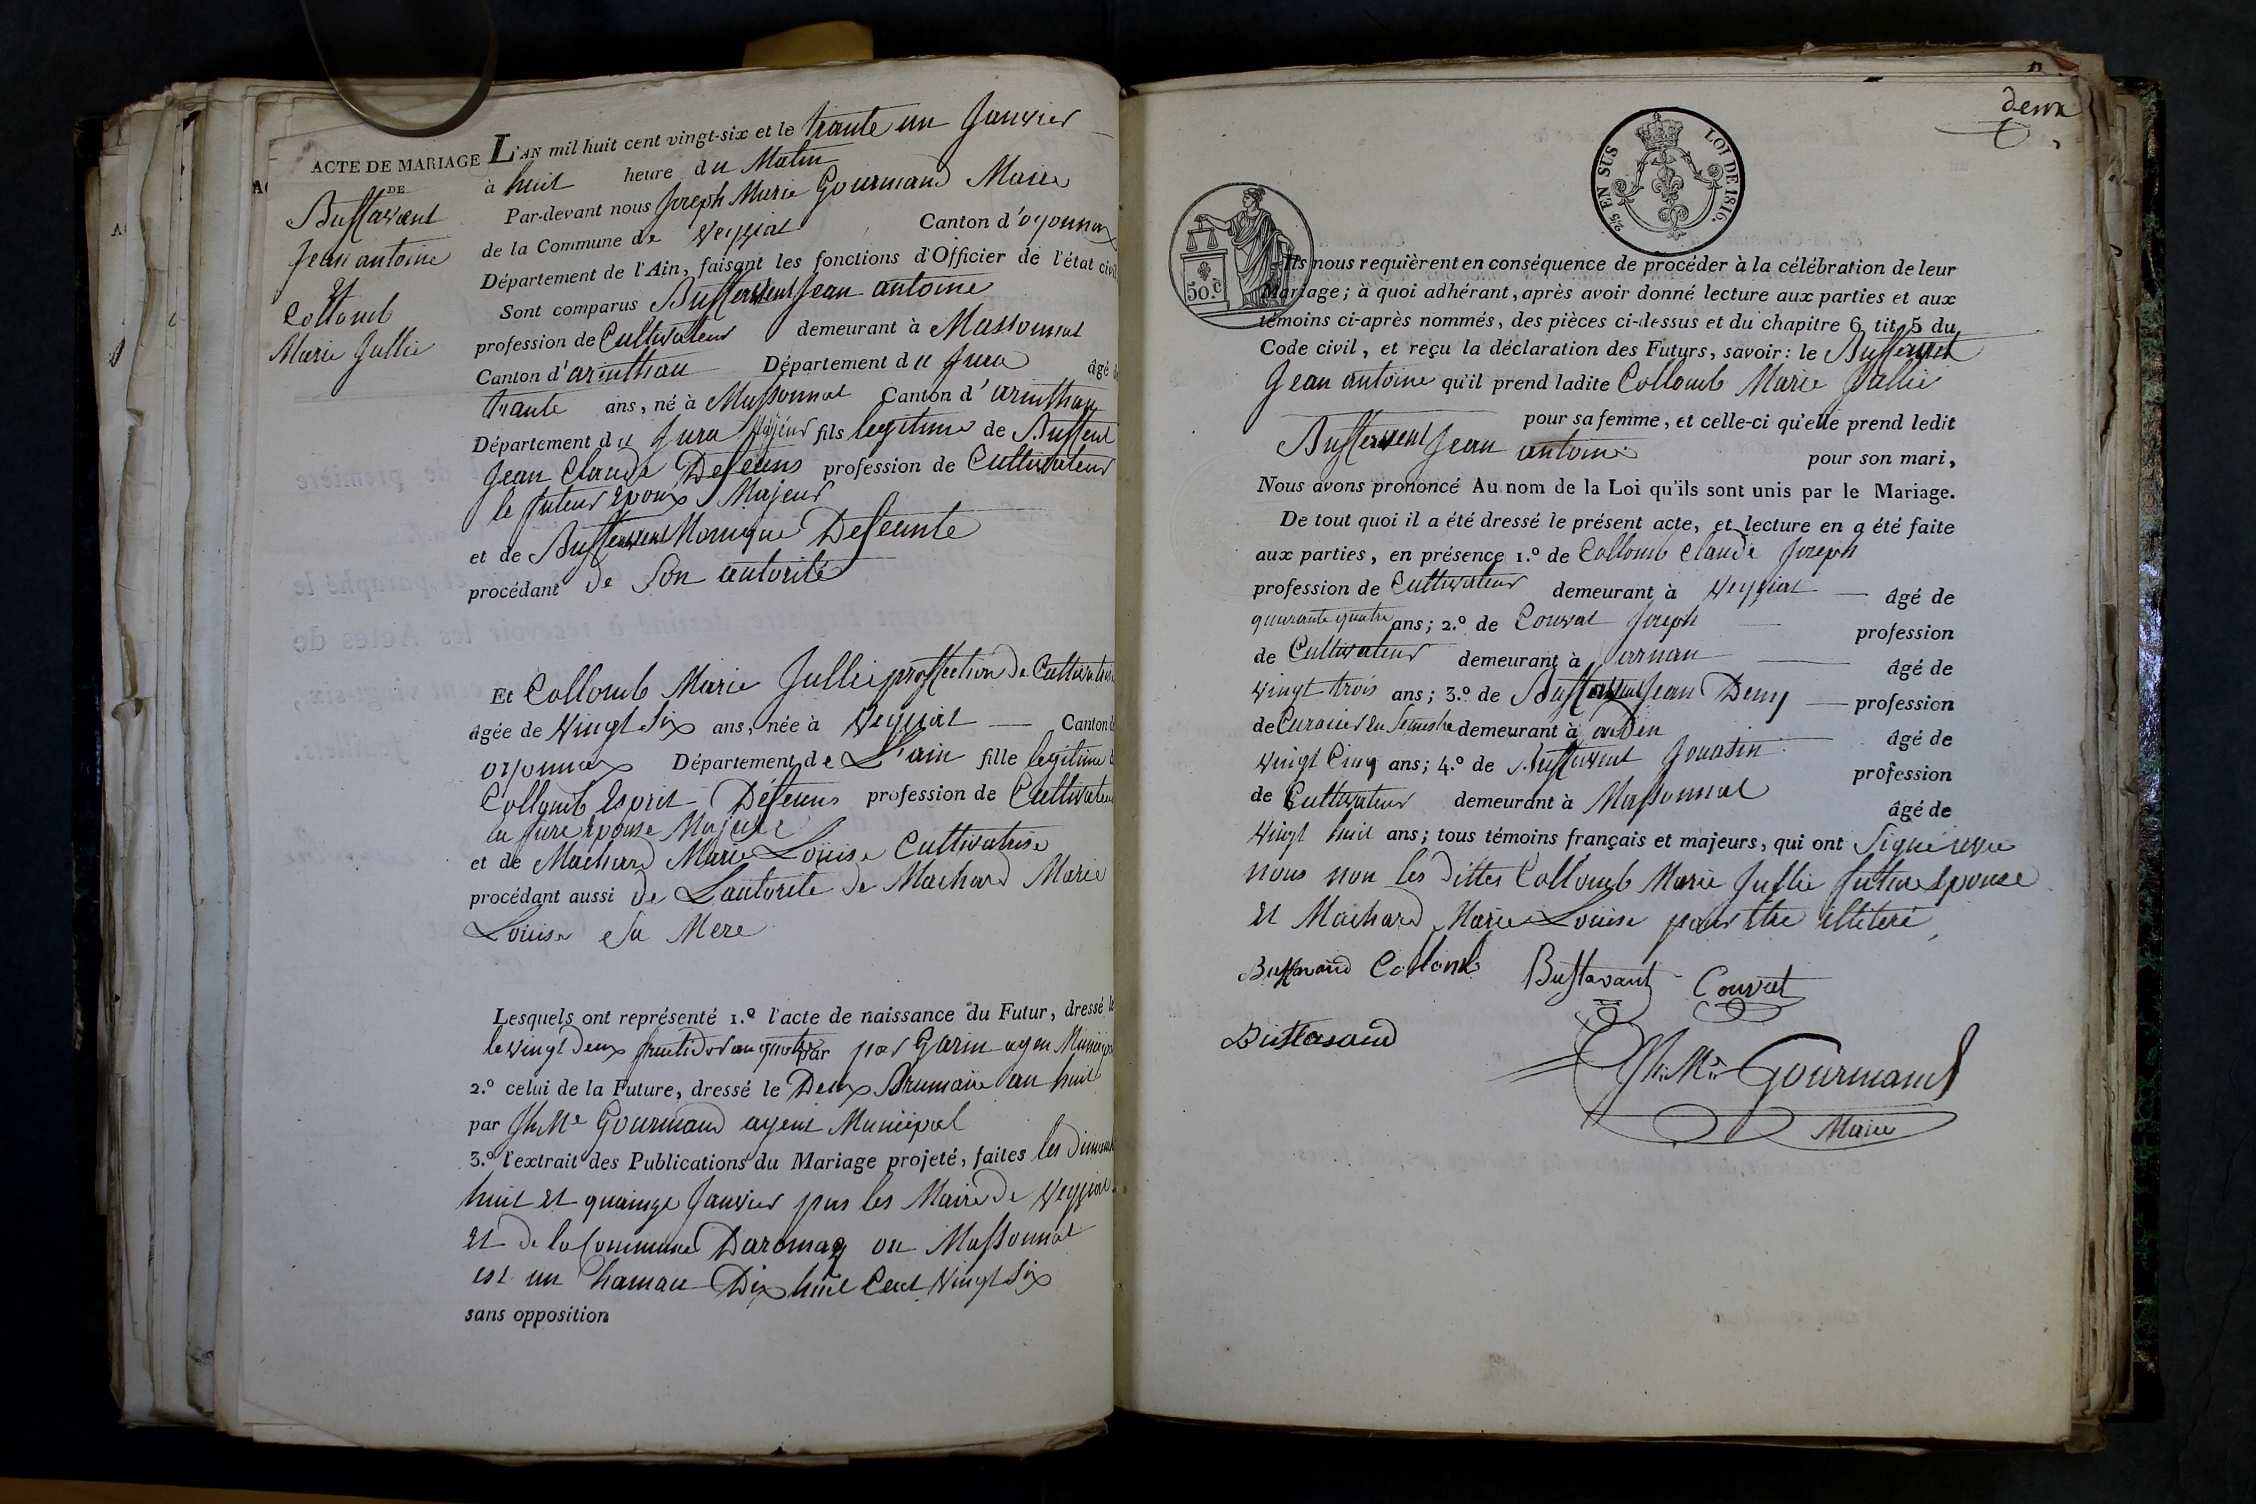 ACTE DE MARIAGE
DE
Bustavant
Jean antoine
et
Collomb
Marie Jullie
L'AN mil huit cent vingt-six et le trante un Janvier
à huit heure du Matin
Par-devant nous Joseph Marie Gourmand Maire
de la Commune de Veyziat Canton d'oyonnax
Département de l'Ain, faisant les fonctions d'Officier de l'état civil
Sont comparus Bustavent Jean antoine
profession de Cultivateur demeurant à Massonnat
Canton d'arinthau Département du Jura âgé de
trante ans, né à Massonnat Canton d'arinthau
Département du Jura Majeur fils legitime de
Jean Claude Defeuns profession de Cultivateur
le futeur Epoux Majeur
et de Bustavent Monique Defeunte
procédant de Son autorité
Et Collomb Marie Jullie proffection de Cultivatrise
âgée de Vingt Six ans, née à Veyziat Canton d
oyonnax Département de L'ain fille legitime d
Collomb Esprit Défeuns profession de Cultivateur
la future Epouse Majeure
et de Machard Marie Loüise Cultivatrise
procédant aussi de Lautorité de Machard Marie
Loüise Sa Mere
Lesquels ont représenté 1.º l'acte de naissance du Futur, dressé le
le vingt Deux fructidor an quatre par par Garin agen Municipal
2.º celui de la Future, dressé le Deux Brumaire an huit
par Jh Me Gourmand agent Municipal
3.º l'extrait des Publications du Mariage projeté, faites les Dimanche
huit et quainze Janvier par les Maire de Veyziat
et de la Commune Daromaz ou Massonnat
est un hamau Dix huit Cent Vingt Six
sans opposition
deux
2/5 EN SUS LOI DE 1816.
50.c
Ils nous requièrent en conséquence de procéder à la célébration de leur
Mariage; à quoi adhérant, après avoir donné lecture aux parties et aux
témoins ci-après nommés, des pièces ci-dessus et du chapitre 6, tit. 5 du
Code civil, et reçu la déclaration des Futurs, savoir: le Bustavent
Jean antoine qu'il prend ladite Collomb Marie Jullie
pour sa femme, et celle-ci qu'elle prend ledit
Bustavent Jean antoine pour son mari,
Nous avons prononcé Au nom de la Loi qu'ils sont unis par le Mariage.
De tout quoi il a été dressé le présent acte, et lecture en a été faite
aux parties, en présence 1.º de Collomb Claude Joseph
profession de Cultivateur demeurant à Veyziat âgé de
quarante quatre ans; 2.º de Couvat Joseph profession
de Cultivateur demeurant à âgé de
vingt trois ans; 3.º de Bustavent Jean Deny profession
de demeurant à âgé de
vingt Cinq ans; 4.º de Bustavent profession
de Cultivateur demeurant à Massonnat âgé de
Vingt huit ans; tous témoins français et majeurs, qui ont Signé avec
nous non les dittes Collomb Marie Jullie future Epouse
et Machard Marie Loüise pour être illiteré
Bustavand Collomb Bustavant Couvat
Bustavand
Jh. Me Gourmand
Maire